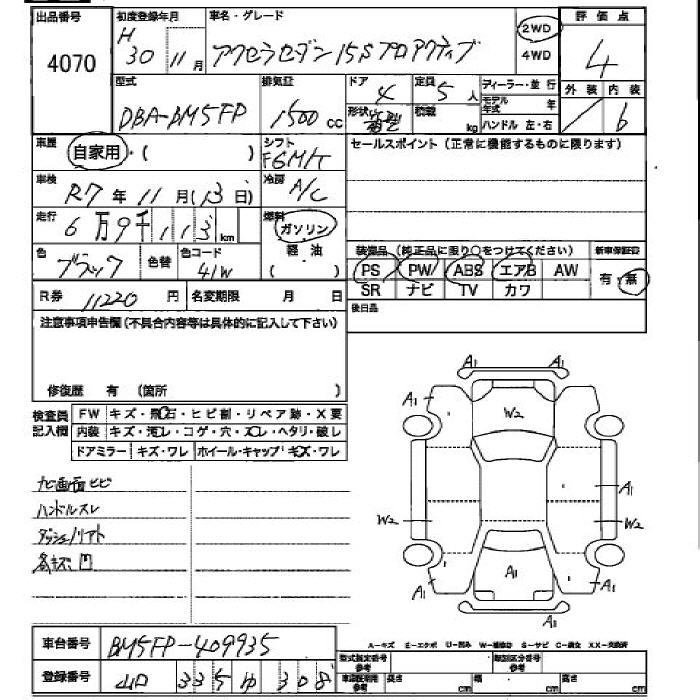 出品番号 初度登録年月 車名・グレード 評価点
4070 H 30 11月 アクセラセダン 15S プロアクティブ 2WD 4WD 4
型式 排気量 ドア 定員 ディーラー・並行 外装 内装
DBA-BM5FP 1500 cc 4 5人 モデル年式 年 b
形状 箱型 積載 kg ハンドル 左・右
車歴 自家用・( ) シフト F6M/T セールスポイント(正常に機能するものに限ります)
車検 R7年 11月(13日) 冷房 A/C
走行 6万9千113km 燃料 ガソリン 軽油 ( )
色 ブラック 色替 色コード 41W
装備品(純正品に限り○をつけてください) 新車保証書
PS PW ABS エアB AW 有・無
SR ナビ TV カワ
R券 11220円 名変期限 月 日 後日品
注意事項申告欄(不具合内容等は具体的に記入して下さい)
修復歴 有 (箇所 )
検査員記入欄 FW キズ・飛石・ヒビ割・リペア跡・X要
内装 キズ・汚レ・コゲ・穴・スレ・ヘタリ・破レ
ドアミラー キズ・ワレ ホイール・キャップ キズ・ワレ
ナビ画面ヒビ
ハンドルスレ
ダッシュノリアト
各キズ凹
A1 A1
A1 W2
A1
W2 W2
A1 A1 A1
A1
A-キズ E-エクボ U-凹み W-補修跡 S-サビ C-腐食 XX-交換済
車台番号 BM5FP-409935
型式指定番号 参考 類別区分番号 参考
登録番号 335 ゆ 308
車庫証明用参考 長さ cm 幅 cm 高さ cm